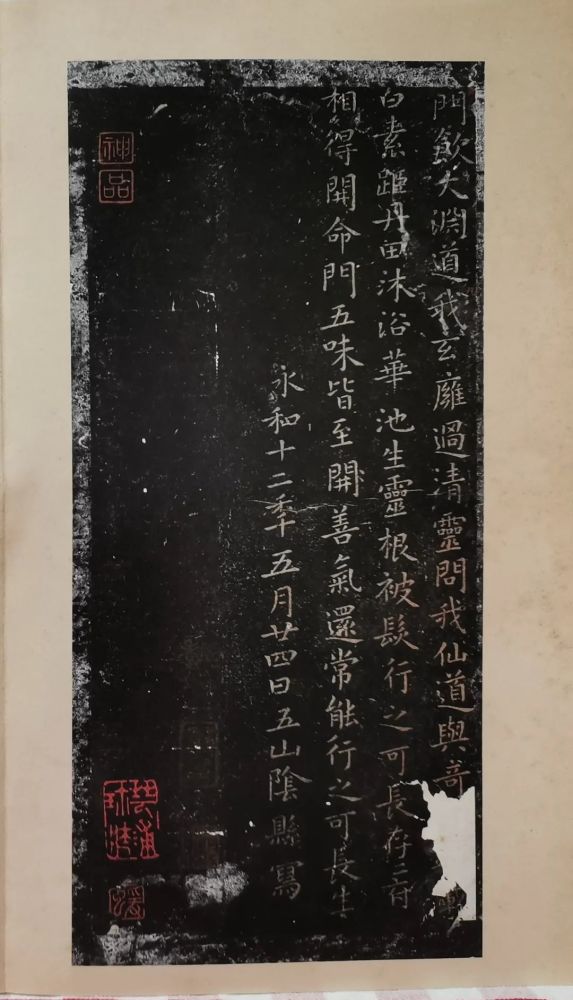 門飲大淵道我玄廱過清靈問我仙道與奇
白素距丹田沐浴華池生靈根被髮行之可長存二府
相得開命門五味皆至開善氣還常能行之可長生
永和十二年五月廿四日五山陰縣寫
神品